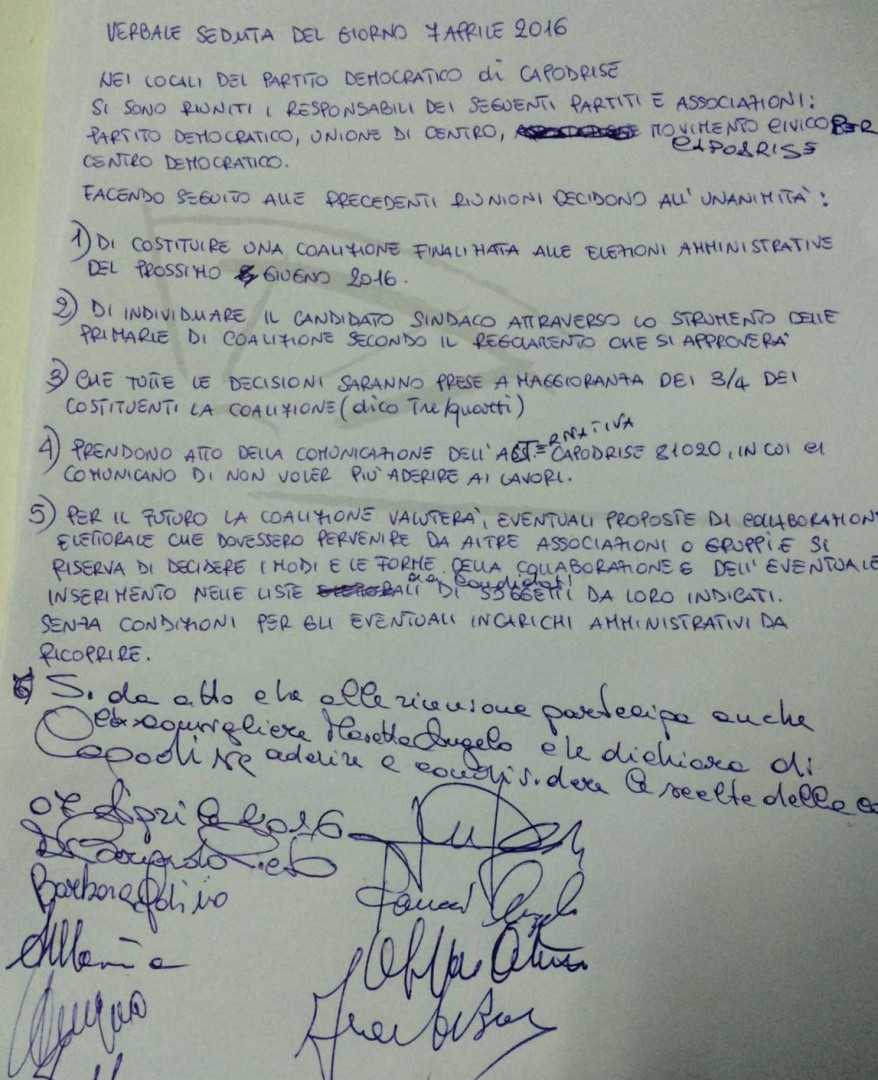 VERBALE SEDUTA DEL GIORNO 7 APRILE 2016
NEI LOCALI DEL PARTITO DEMOCRATICO di CAPODRISE
SI SONO RIUNITI I RESPONSABILI DEI SEGUENTI PARTITI E ASSOCIAZIONI:
PARTITO DEMOCRATICO, UNIONE DI CENTRO, MOVIMENTO CIVICO PER
CAPODRISE
CENTRO DEMOCRATICO.
FACENDO SEGUITO ALLE PRECEDENTI RIUNIONI DECIDONO ALL'UNANIMITÀ:
1) DI COSTITUIRE UNA COALIZIONE FINALIZZATA ALLE ELEZIONI AMMINISTRATIVE
DEL PROSSIMO GIUGNO 2016.
2) DI INDIVIDUARE IL CANDIDATO SINDACO ATTRAVERSO LO STRUMENTO DELLE
PRIMARIE DI COALIZIONE SECONDO IL REGOLAMENTO CHE SI APPROVERÀ
3) CHE TUTTE LE DECISIONI SARANNO PRESE A MAGGIORANZA DEI 3/4 DEI
COSTITUENTI LA COALIZIONE (dico Tre/quarti)
4) PRENDONO ATTO DELLA COMUNICAZIONE DELL'ALTERNATIVA CAPODRISE 81020, IN CUI CI
COMUNICANO DI NON VOLER PIÙ ADERIRE AI LAVORI.
5) PER IL FUTURO LA COALIZIONE VALUTERÀ, EVENTUALI PROPOSTE DI COLLABORAZION
ELETTORALE CHE DOVESSERO PERVENIRE DA ALTRE ASSOCIAZIONI O GRUPPI E SI
RISERVA DI DECIDERE I MODI E LE FORME DELLA COLLABORAZIONE E DELL'EVENTUALE
INSERIMENTO NELLE LISTE dei candidati DI SOGGETTI DA LORO INDICATI.
SENZA CONDIZIONI PER GLI EVENTUALI INCARICHI AMMINISTRATIVI DA
RICOPRIRE.
6) Si da atto che alle riunione partecipa anche
consigliere Angelo che dichiara di
aderire e condividere le scelte della
07 Aprile 2016
Barbara